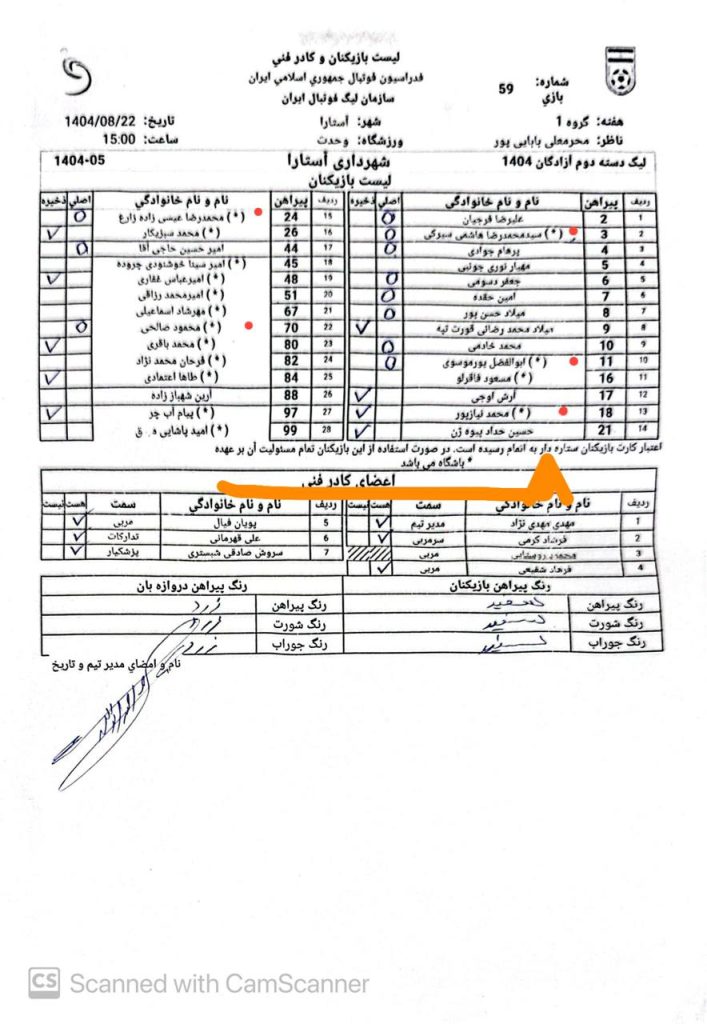 ليست بازيکنان و کادر فني
فدراسيون فوتبال جمهوري اسلامي ايران
سازمان ليگ فوتبال ايران
شماره بازي: 59
هفته: گروه 1 شهر: آستارا تاريخ: 1404/08/22
ناظر: محرمعلی بابایی پور ورزشگاه: وحدت ساعت: 15:00
ليگ دسته دوم آزادگان 1404 شهرداری آستارا 1404-05
ليست بازيکنان
رديف پيراهن نام و نام خانوادگي اصلي ذخيره رديف پيراهن نام و نام خانوادگي اصلي ذخيره
1 2 علیرضا فرجیان 15 24 (*) محمدرضا عیسی زاده زارع
2 3 (*) سیدمحمدرضا هاشمی سیرکی 16 26 (*) محمد سبزیکار
3 4 پرهام جوادی 17 44 امیر حسین حاجی آقا
4 5 مهیار نوری جونبی 18 45 (*) امیر سینا خوشنودی چروده
5 6 جعفر دسومی 19 48 (*) امیرعباس غفاری
6 7 امین حقده 20 51 (*) امیرمحمد رزاقی
7 8 میلاد حسن پور 21 67 (*) مهرشاد اسماعیلی
8 9 میلاد محمد رضائی قورت تپه 22 70 (*) محمود صالحی
9 10 محمد خادمی 23 80 (*) محمد باقری
10 11 (*) ابوالفضل پورموسوی 24 82 (*) فرحان محمد نژاد
11 16 (*) مسعود فاقرلو 25 84 (*) طاها اعتمادی
12 17 آرش اوجی 26 88 آرین شهباز زاده
13 18 (*) محمد نیازپور 27 97 (*) پیام آب چر
14 21 حسین حداد پیوه ژن 28 99 (*) امید پاشایی ه. ق
اعتبار کارت بازیکنان ستاره دار به اتمام رسیده است. در صورت استفاده از این بازیکنان تمام مسئولیت آن بر عهده
باشگاه می باشد *
اعضای کادر فنی
رديف نام و نام خانوادگي سمت هست نيست رديف نام و نام خانوادگي سمت هست نيست
1 مهدی مهدی نژاد مدیر تیم 5 پویان فیال مربی
2 فرشاد کرمی سرمربی 6 علی قهرمانی تدارکات
3 محمد مربی 7 سروش صادقی شبستری پزشکیار
4 فرهاد شفیعی مربی
رنگ پيراهن بازيکنان رنگ پيراهن دروازه بان
رنگ پيراهن سفید رنگ پيراهن زرد
رنگ شورت سفید رنگ شورت زرد
رنگ جوراب سفید رنگ جوراب زرد
نام و امضاي مدير تيم و تاريخ
CS Scanned with CamScanner